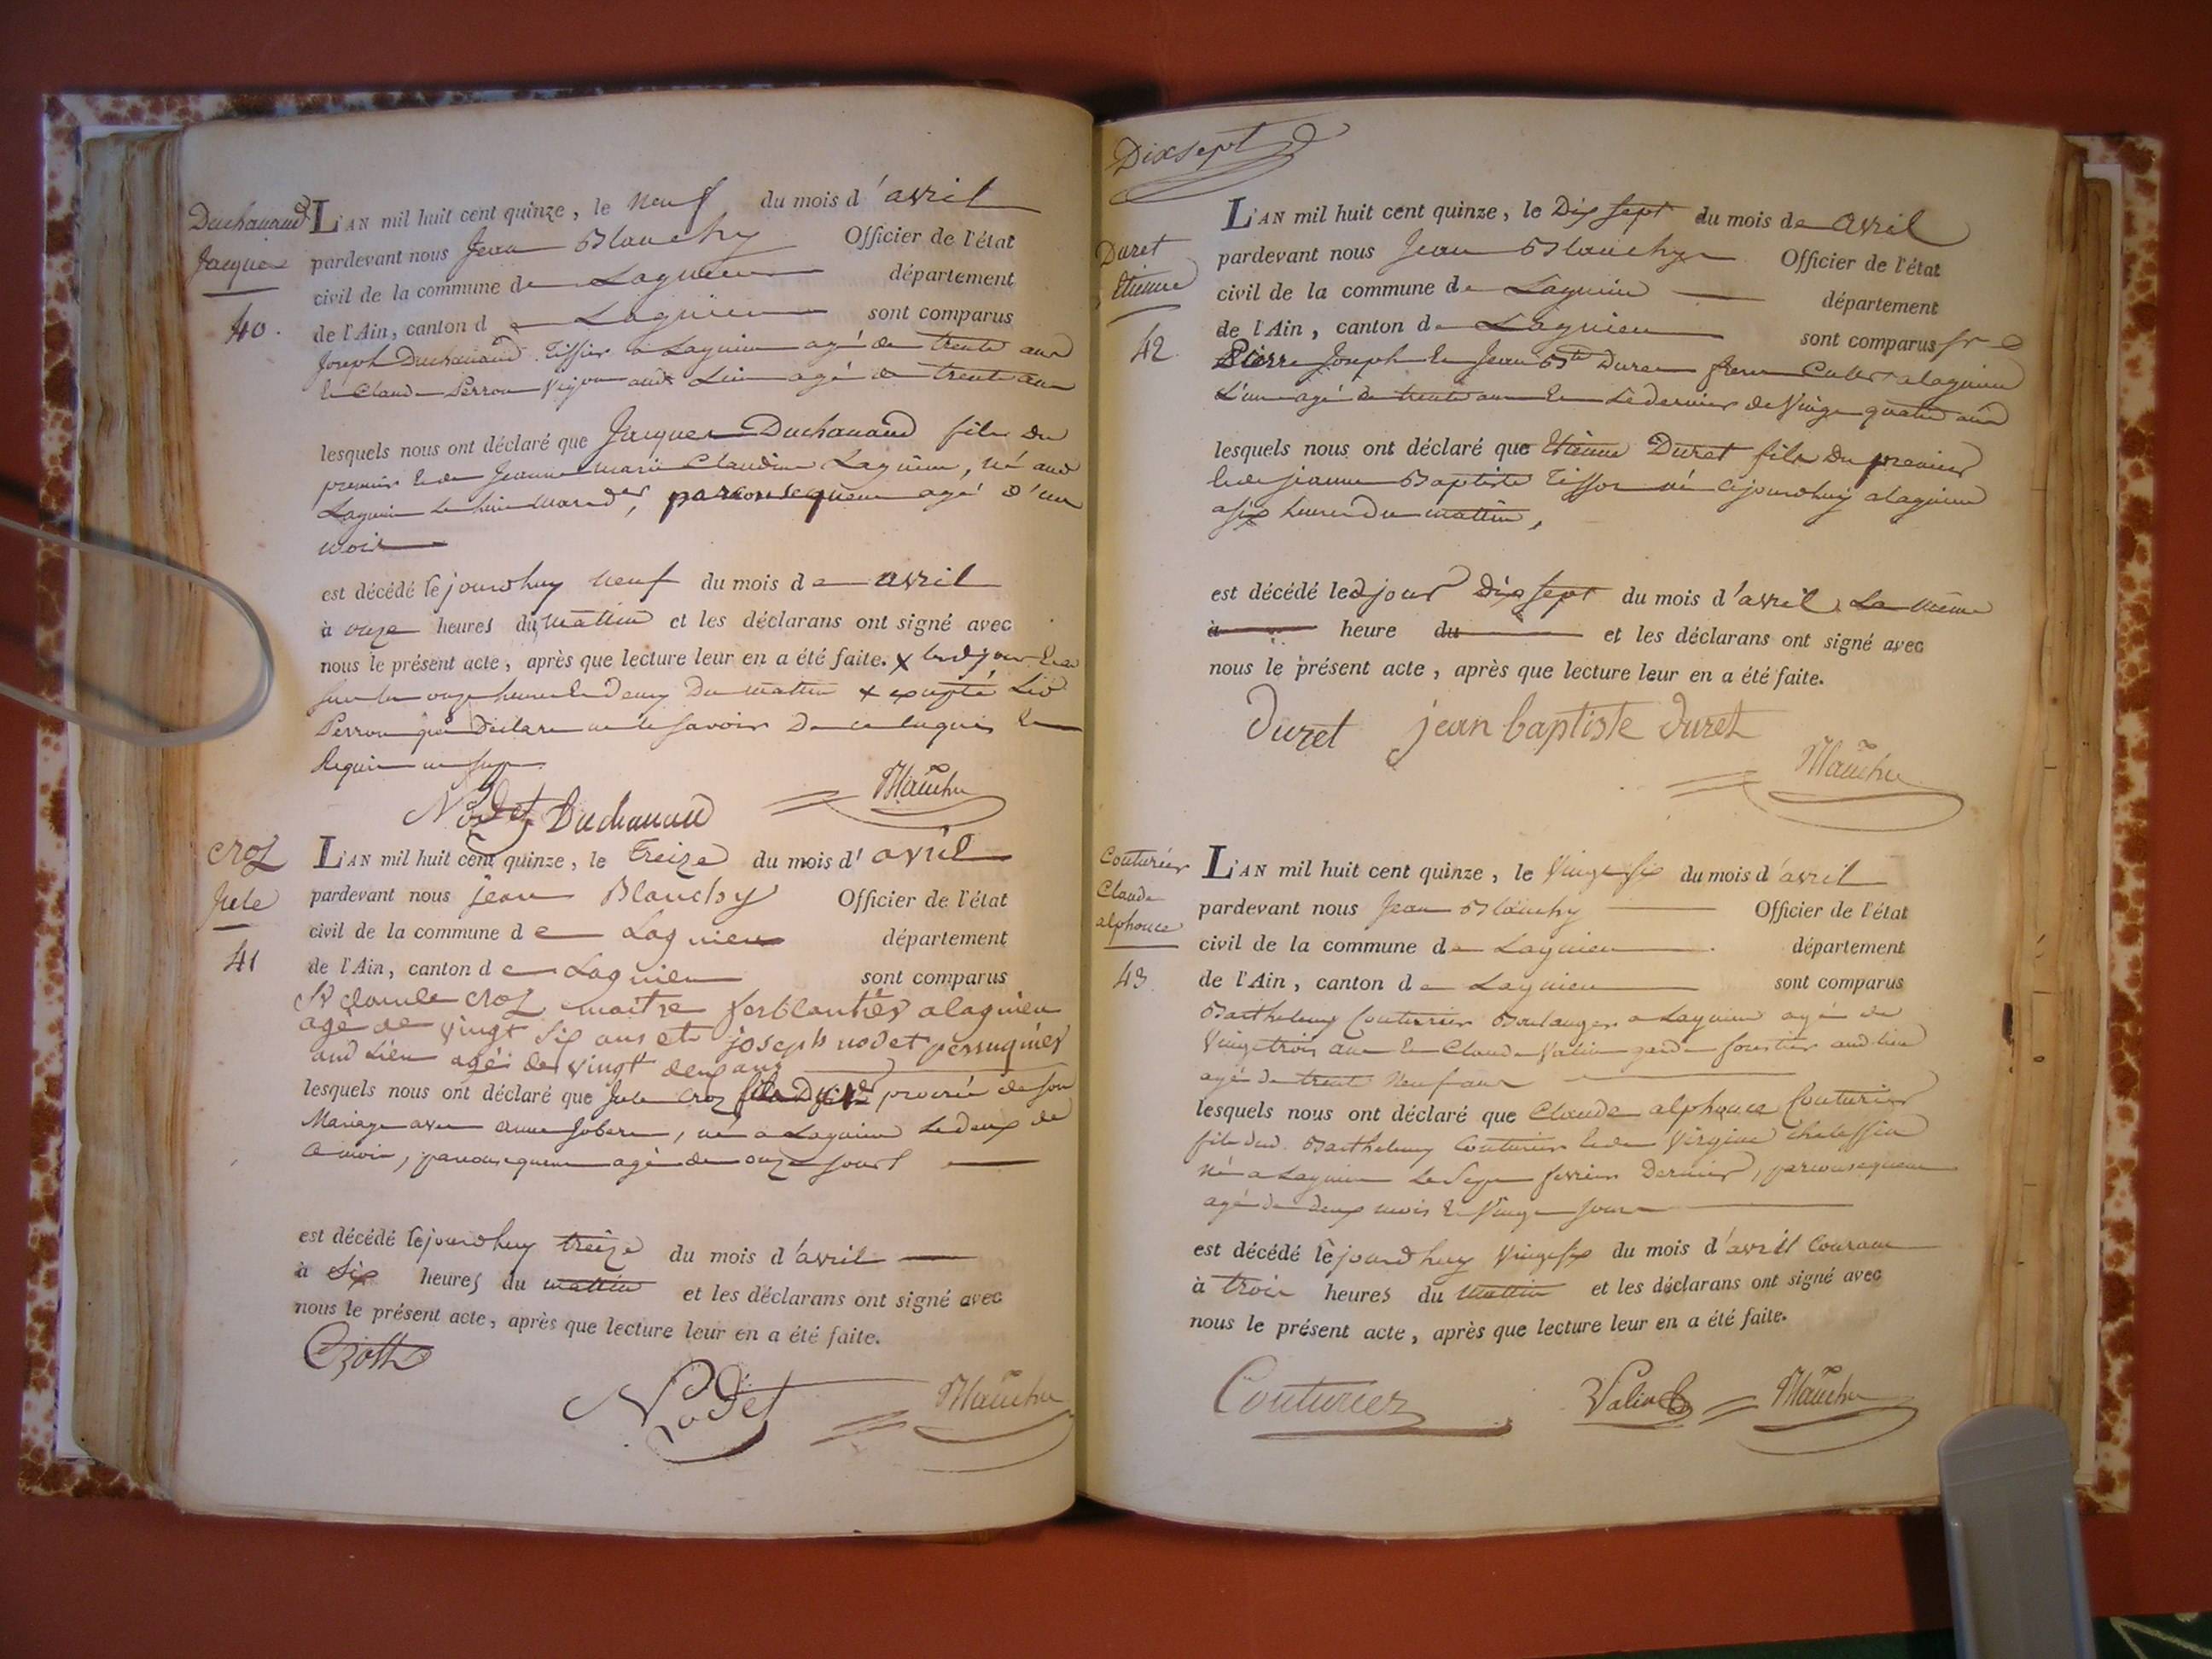 Duchanaud
Jacques
40.
L'AN mil huit cent quinze, le neuf du mois d'avril
pardevant nous Jean Blanchy Officier de l'état
civil de la commune de Lagnieu département
de l'Ain, canton de Lagnieu sont comparus
Joseph Duchanaud Tissier a Lagnieu agé de trente ans
et Claude Perron Vigon aud Lieu agé de trente ans
lesquels nous ont déclaré que Jacques Duchanaud fils du
premier et de Jeanne marie Claudine Lagnieu, né aud
Lagnieu le mars der, par consequent agé d'un
mois
est décédé lejourdhuy neuf du mois de avril
à onze heures du mattin et les déclarans ont signé avec
nous le présent acte, après que lecture leur en a été faite. x led jour
sur les onze heures et demy du mattin x excepté
Perron qui déclare ne le savoir de ce enquis et
Requis
Nodet Duchanaud Blanchy
croz
Jule
41
L'AN mil huit cent quinze, le treize du mois d'avril
pardevant nous jean Blanchy Officier de l'état
civil de la commune de Lagnieu département
de l'Ain, canton de Lagnieu sont comparus
Sr claude croz maitre ferblantier a lagnieu
age de vingt six ans et joseph nodet perruquier
aud Lieu agé de vingt deux ans
lesquels nous ont déclaré que Jule Croz fils procréé de son
Mariage avec anne Jobert, né a Lagnieu le deux de
ce mois, par consequent agé de onze jours
est décédé lejourdhuy treize du mois d'avril
à six heures du mattin et les déclarans ont signé avec
nous le présent acte, après que lecture leur en a été faite.
Crotte
Nodet Blanchy
Dixsept
Duret
Etienne
42
L'AN mil huit cent quinze, le Dix sept du mois de avril
pardevant nous Jean Blanchy Officier de l'état
civil de la commune de Lagnieu département
de l'Ain, canton de Lagnieu sont comparus sr
Pierre Joseph et Jean Bte Duret freres Cult. a lagnieu
L'un agé de trente ans et le dernier de vingt quatre ans
lesquels nous ont déclaré que Etienne Duret fils du premier
et de jeanne Baptiste Tissot né cejourdhuy a lagnieu
a six heures du mattin,
est décédé led jour Dix sept du mois d'avril La même
à heure du et les déclarans ont signé avec
nous le présent acte, après que lecture leur en a été faite.
Duret jean baptiste duret
Blanchy
Couturier
Claude
alphonce
43.
L'AN mil huit cent quinze, le Vingt six du mois d'avril
pardevant nous Jean Blanchy Officier de l'état
civil de la commune de Lagnieu département
de l'Ain, canton de Lagnieu sont comparus
Barthelemy Couturier Boulanger a Lagnieu agé de
Vingt trois ans et Claude Valin garde forestier aud lieu
agé de trente neuf ans
lesquels nous ont déclaré que Claude alphonce Couturier
fils dud. Barthelemy Couturier et de Virginie
né a Lagnieu le Sept fevrier dernier, par consequent
agé de deux mois et Vingt jours
est décédé lejourdhuy Vingt six du mois d'avril Courant
à trois heures du mattin et les déclarans ont signé avec
nous le présent acte, après que lecture leur en a été faite.
Couturier Valin Blanchy